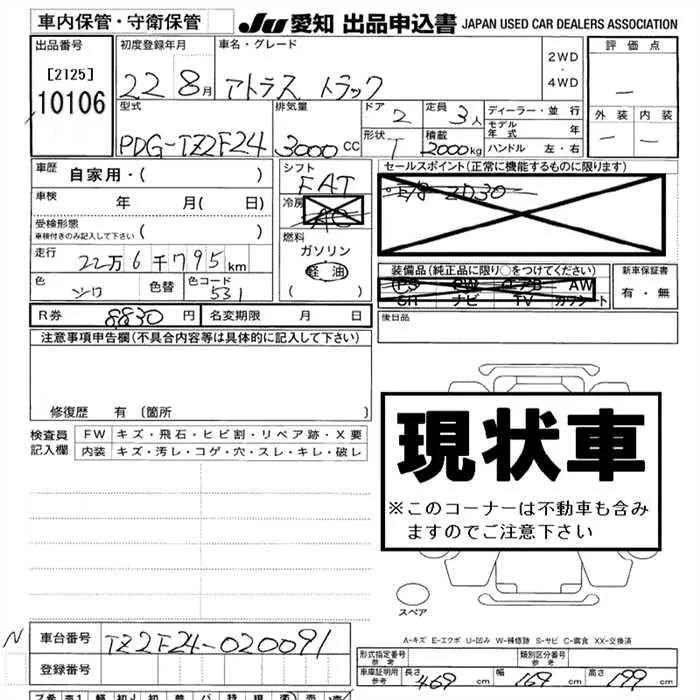 車内保管・守衛保管
JU 愛知 出品申込書 JAPAN USED CAR DEALERS ASSOCIATION
出品番号
[2125]
10106
初度登録年月
22 8月
車名・グレード
アトラス トラック
2WD
・
4WD
評価点
―
外装 内装
― ―
型式
PDG-TZ2F24
排気量
3000cc
ドア 2
定員 3人
形状 T
積載 2000kg
ディーラー・並行
モデル年式 年
ハンドル 左・右
車歴 自家用・( )
車検 年 月( 日)
受検形態
車検付きのみ記入して下さい ( )
走行
22万6千795km
色 シロ 色替 色コード 531
シフト
FAT
冷房
AC
燃料
ガソリン
軽油
( )
セールスポイント(正常に機能するものに限ります)
ZD30
装備品(純正品に限り○をつけてください)
PS PW エアB AW
SR ナビ TV カワシート
新車保証書
有・無
R券 8830円 名変期限 月 日
後日品
注意事項申告欄(不具合内容等は具体的に記入して下さい)
修復歴 有〔箇所 〕
検査員記入欄
FW キズ・飛石・ヒビ割・リペア跡・X要
内装 キズ・汚レ・コゲ・穴・スレ・キレ・破レ
現状車
※このコーナーは不動車も含み
ますのでご注意下さい
スペア
A-キズ E-エクボ U-凹み W-補修跡 S-サビ C-腐食 XX-交換済
N
車台番号 TZ2F24-020091
登録番号
形式指定番号 参考
類別区分番号 参考
車庫証明用 参考 長さ 469cm 幅 169cm 高さ 199cm